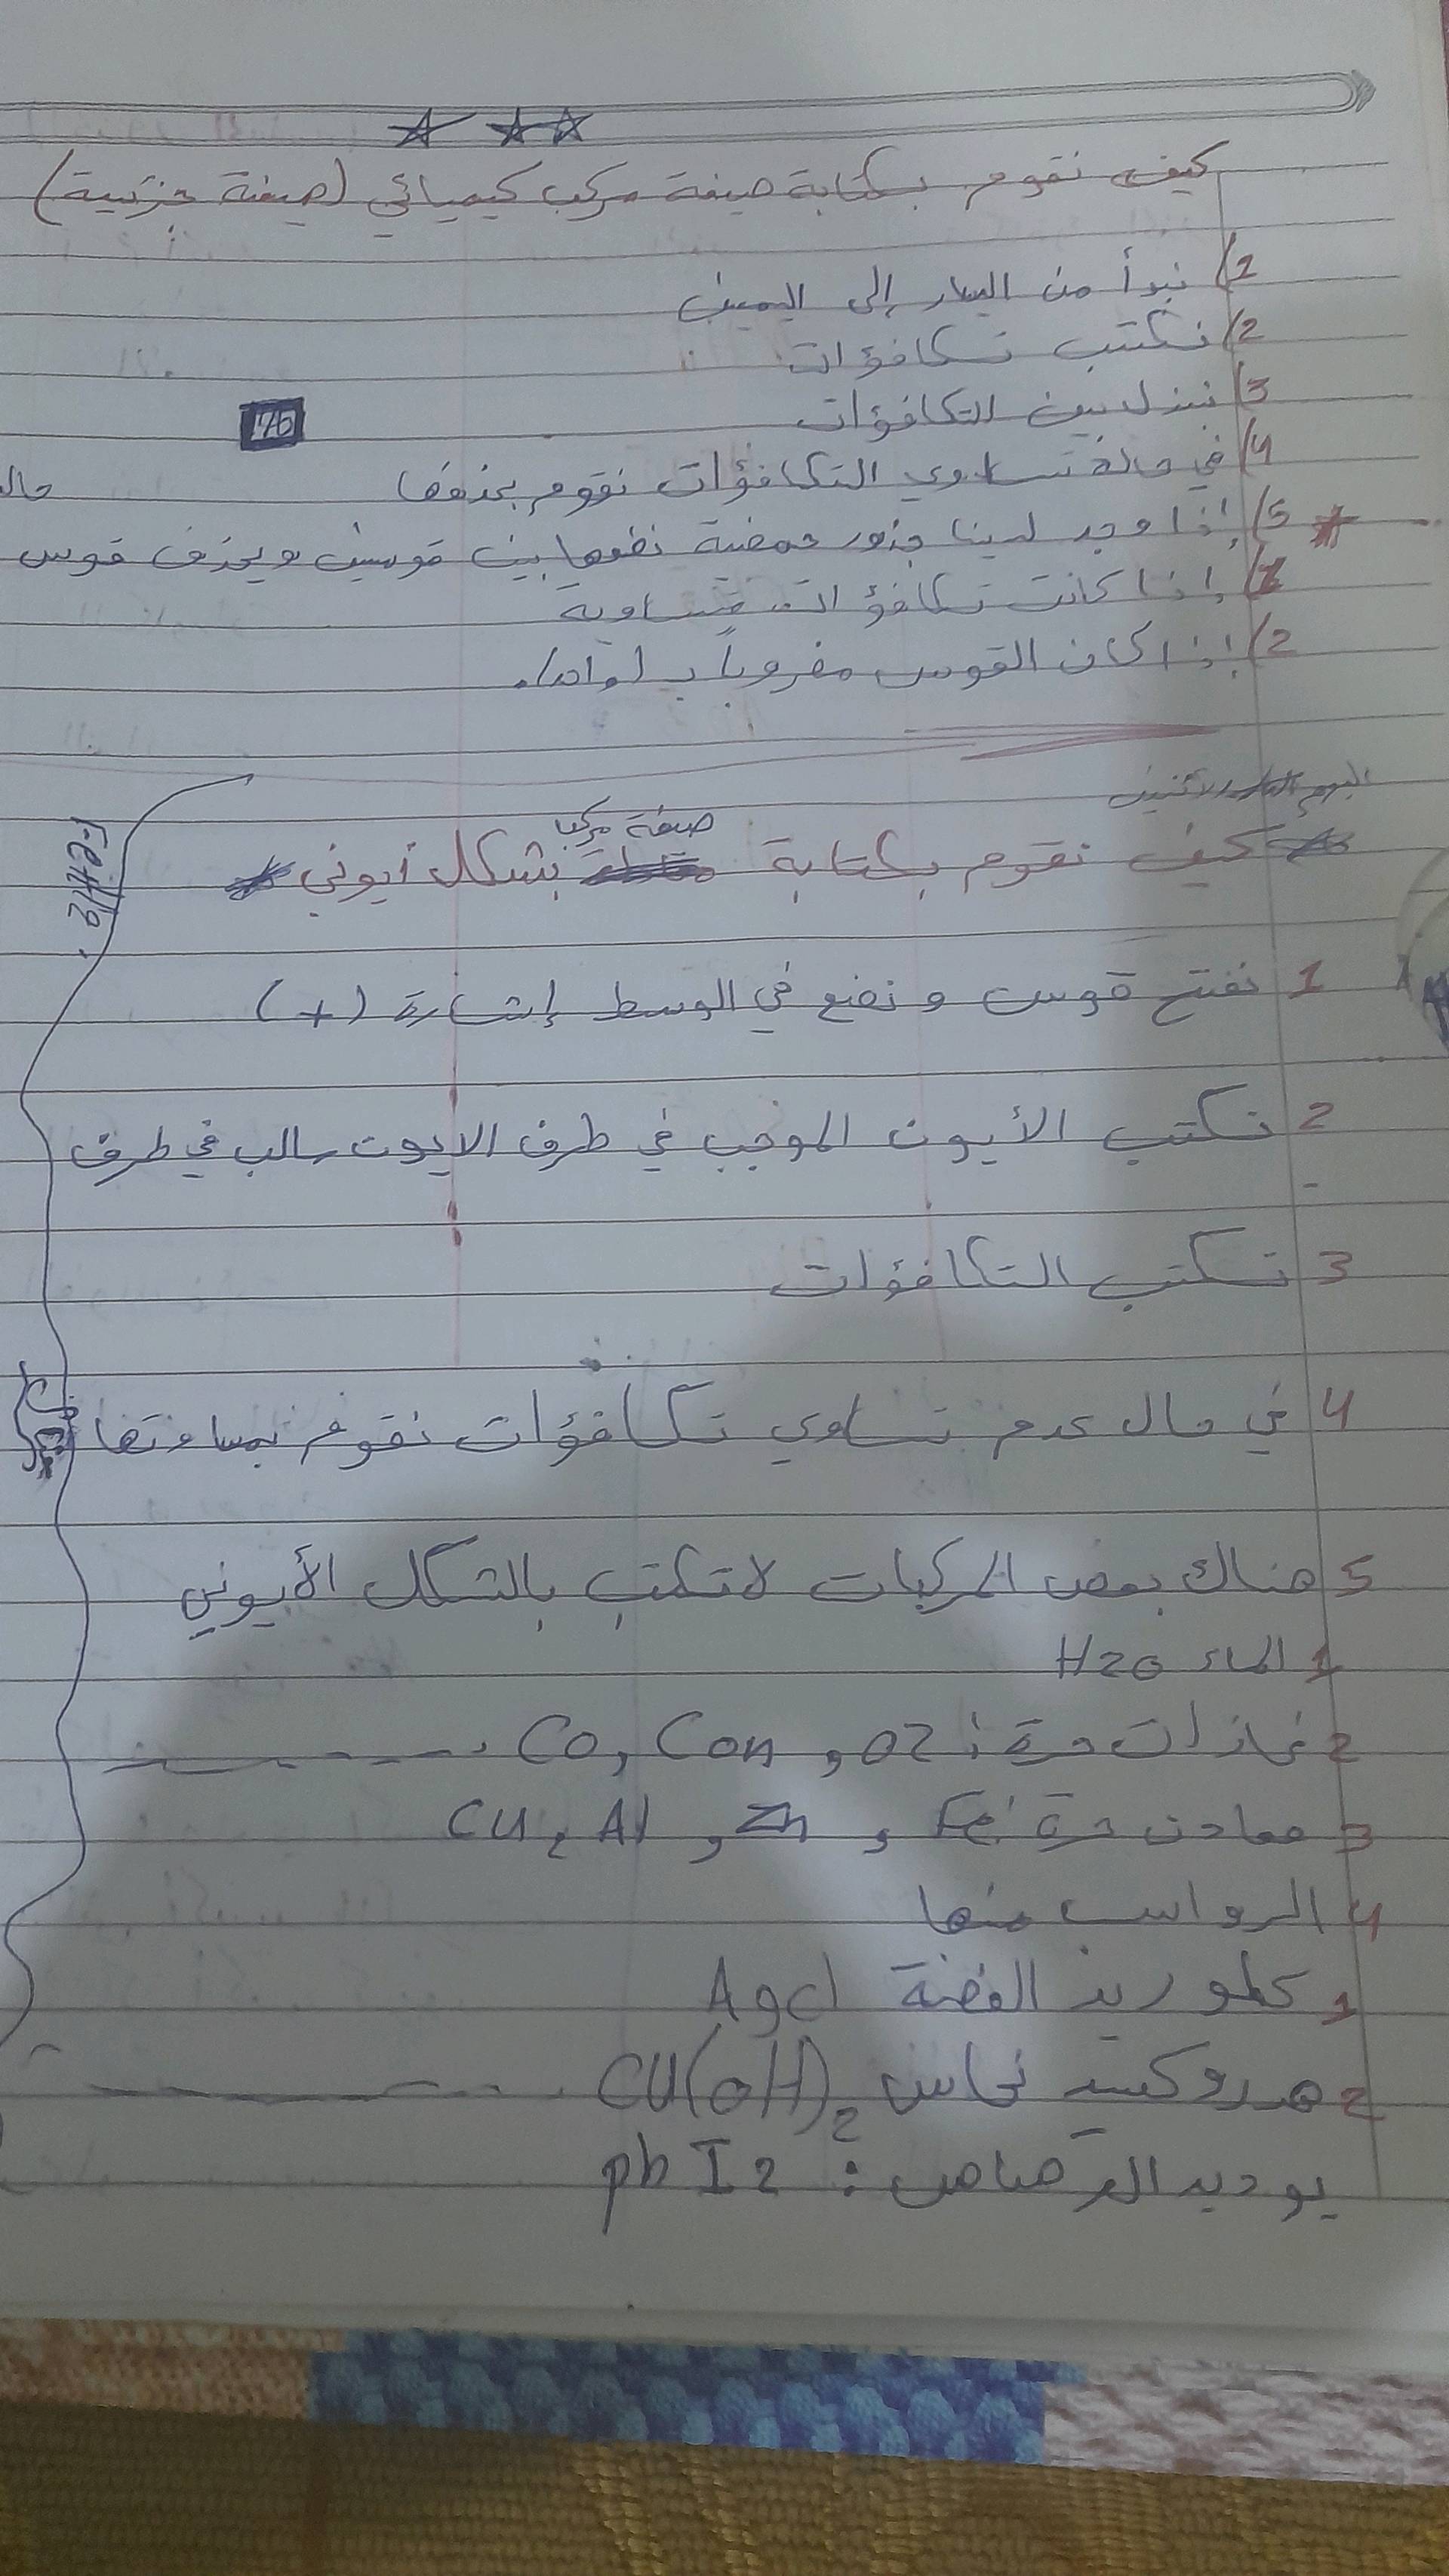 كيف نقوم بكتابة صيغة مركب كيميائي (صيغة جزئية)
1/ نبدأ من اليسار إلى اليمين
2/ نكتب تكافؤات
3/ نبدل بين التكافؤات
176
4/ في حالة تساوي التكافؤات نقوم بحذفها
5/ إذا وجد لدينا جذور حمضية نضعها بين قوسين ويحذف قوس حال
1/ إذا كانت تكافؤات متساوية
2/ إذا كان القوس مضروباً بـ 1 واحد/
اليوم الأثنين
كيف نقوم بكتابة صيغة مركب بشكل أيوني
1 نفتح قوس و نضع في الوسط إشارة (+)
2 نكتب الأيون الموجب في طرف الايون سالب في طرف
3 نكتب التكافؤات
4 في حال عدم تساوي تكافؤات نقوم بمساوتها
5 هناك بعض المركبات لا تكتب بالشكل الأيوني
1 الماء H2O
2 غازات حرة: O2, Con, Co
3 معادن حرة Fe, Zn, Al, Cu
4 الرواسب منها
1 كلوريد الفضة Agcl
2 هدروكسيد نحاس CU(OH)2
يوديد الرصاص: pb I2